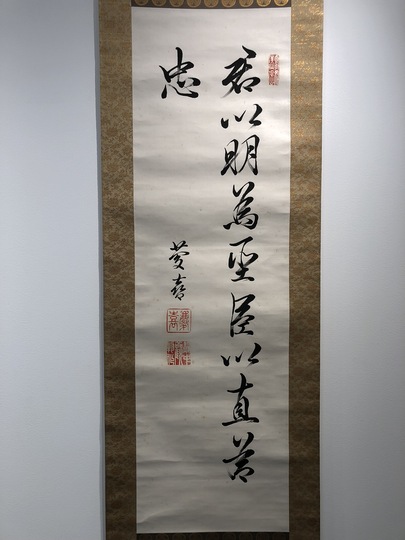 君以明為聖臣以直為
忠